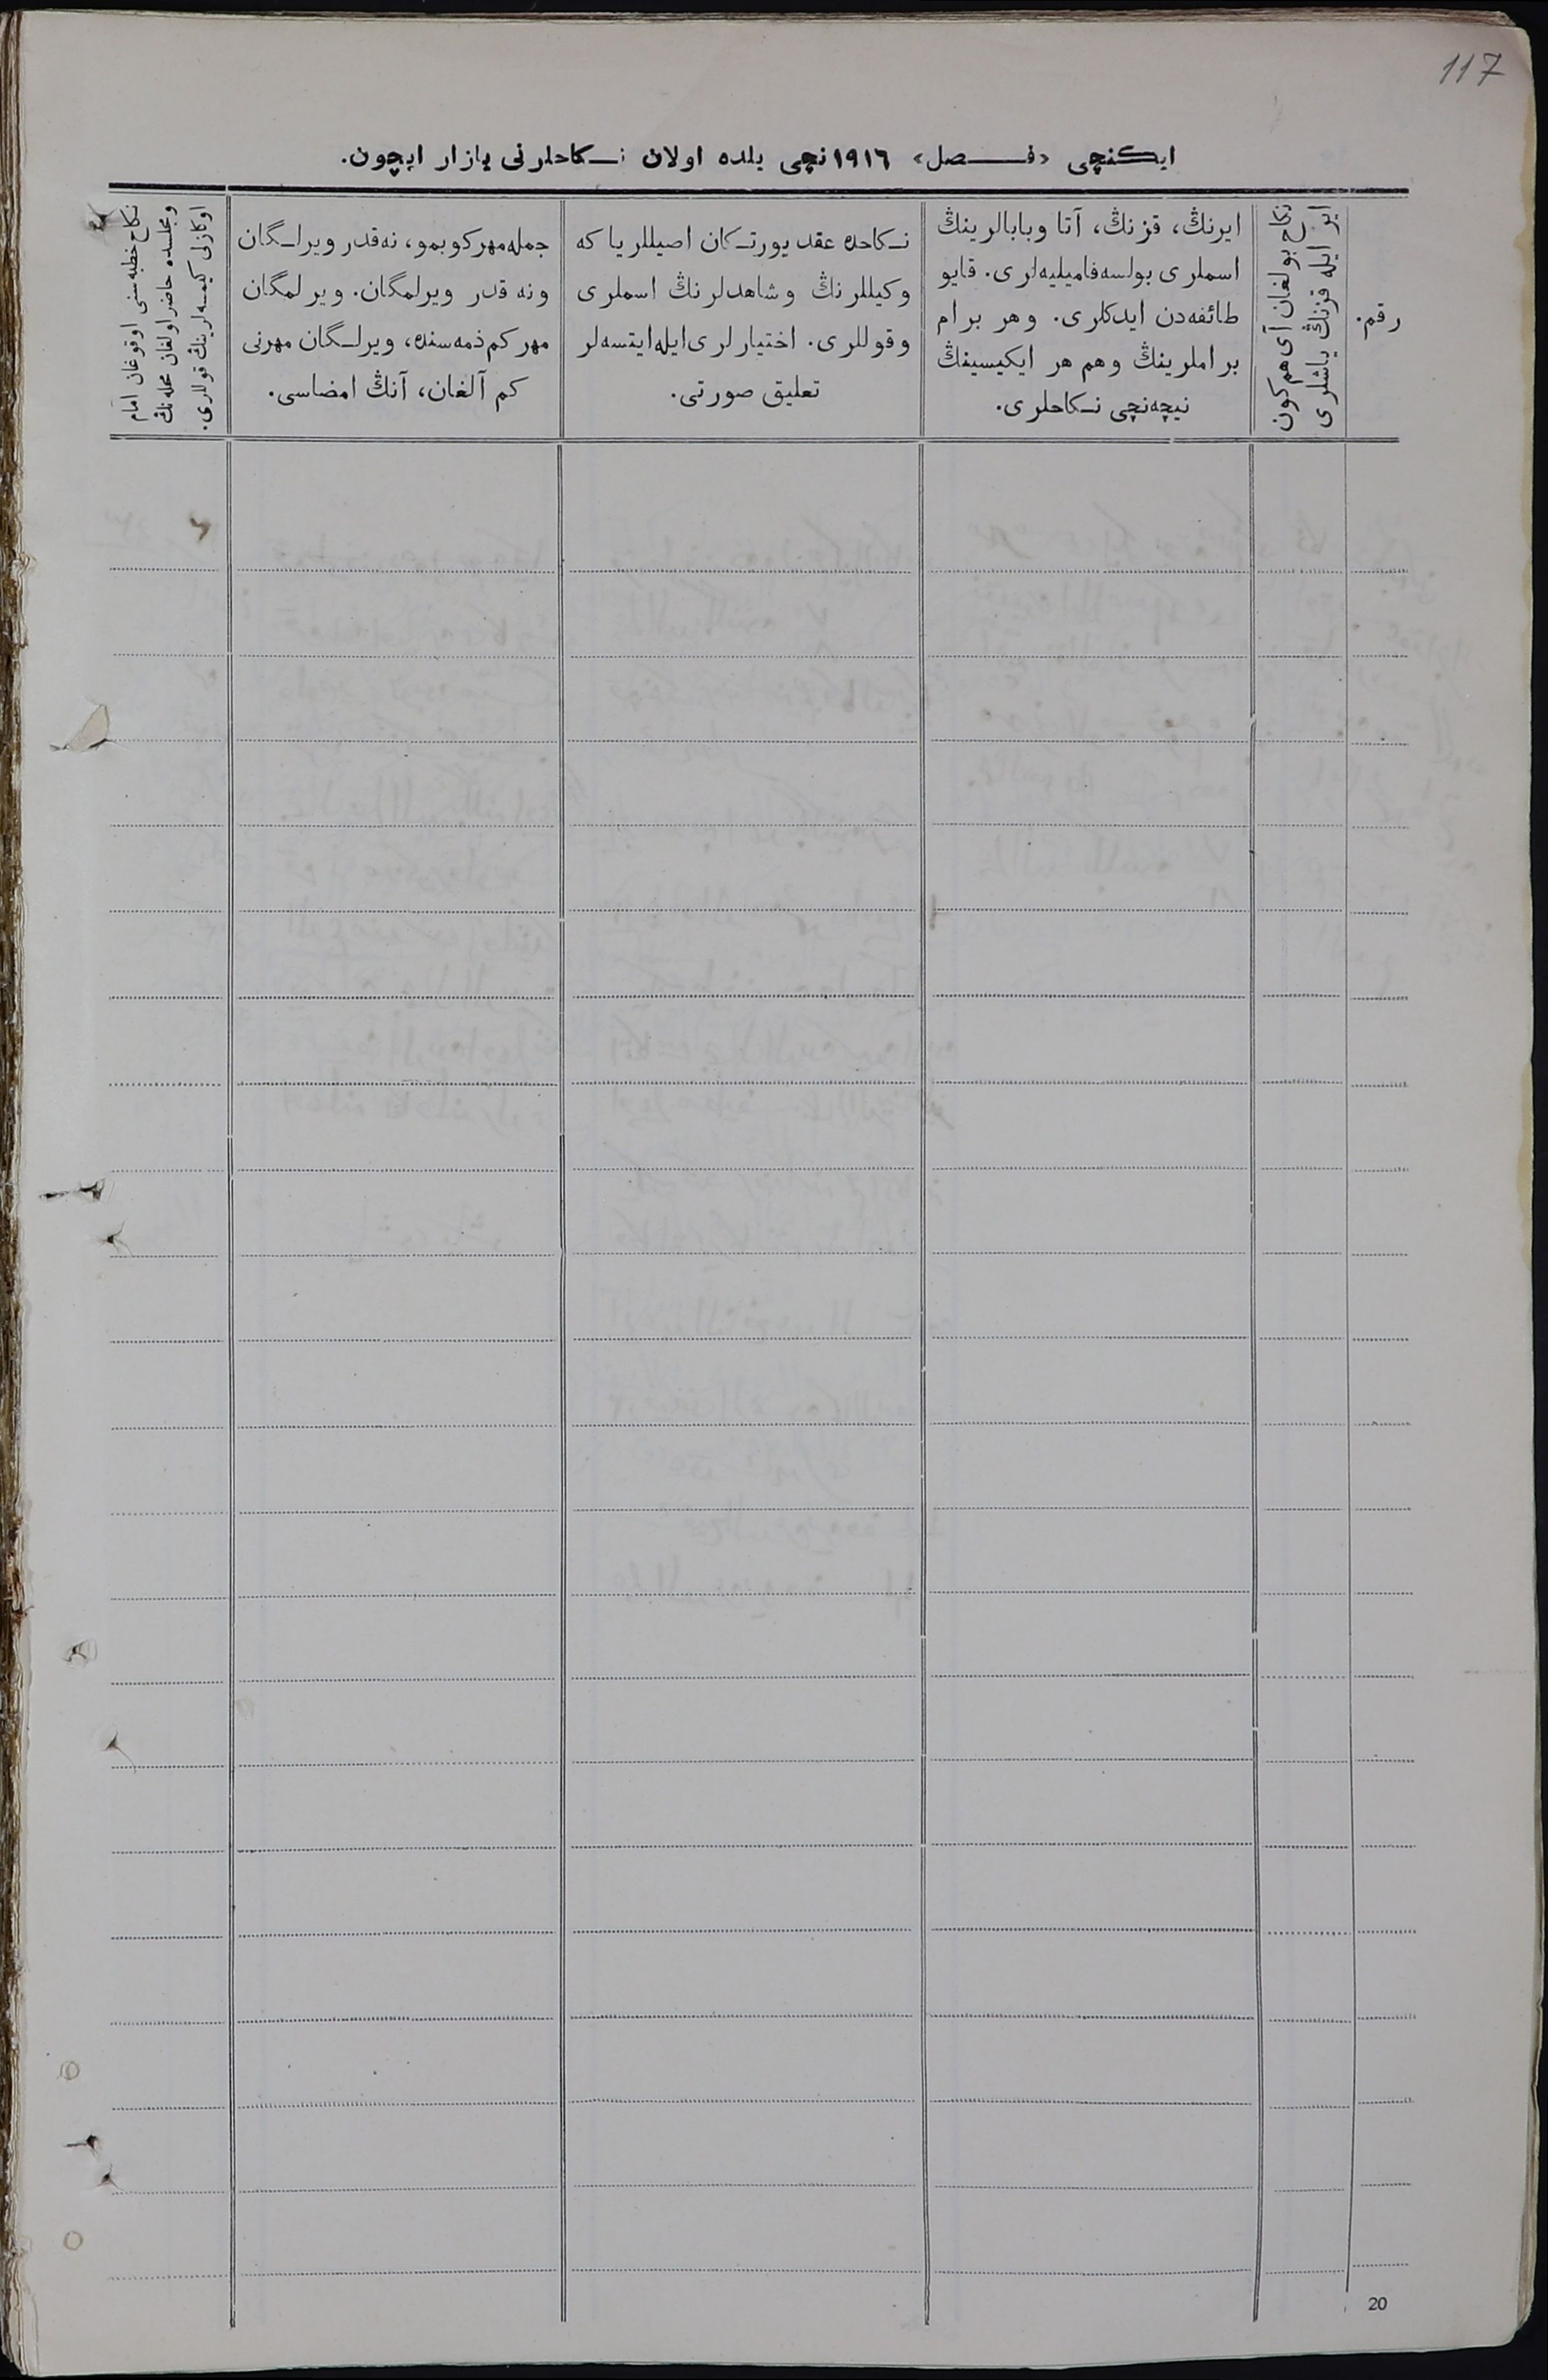 117
ایکنچی «فصل» ١٩١٦نچی یلده اولان نـکاحلرنی یازار ایچون.
رقم.
ایر ایله قزنڭ یاشلری
نکاح بولغان آی هم کون
ایرنڭ، قزنڭ، آتا وبابالرینڭ
اسملری بولسه فامیلیه‌لری. قایو
طائفه‌دن ایدکلری. وهر برام
براملرینڭ وهم هر ایکیسینڭ
نیچه‌نچی نـکاحلری.
نـکاحده عقد یورتـکان اصیللر یا که
وکیللرنڭ وشاهدلرنڭ اسملری
وقوللری. اختیارلری ایله ایتسه‌لر
تعلیق صورتی.
جمله مهر کوبمو، نه‌قدر ویرلـگان
ونه قدر ویرلمگان. ویرلمگان
مهر کم ذمه‌سنده، ویرلـگان مهرنی
کم آلغان، آنڭ امضاسی.
نکاح خطبه‌سنی اوقوغان امام
ومجلسده حاضر اولغان محله‌نڭ
اوکازلی کیمسه‌لرینڭ قوللری.
20